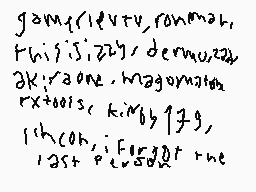 gamerlevtv, ronmari,
thisisizzy, dermo,
akiraone, magomation
rxtools, kirby 179,
ichcon, i forgot the
last person